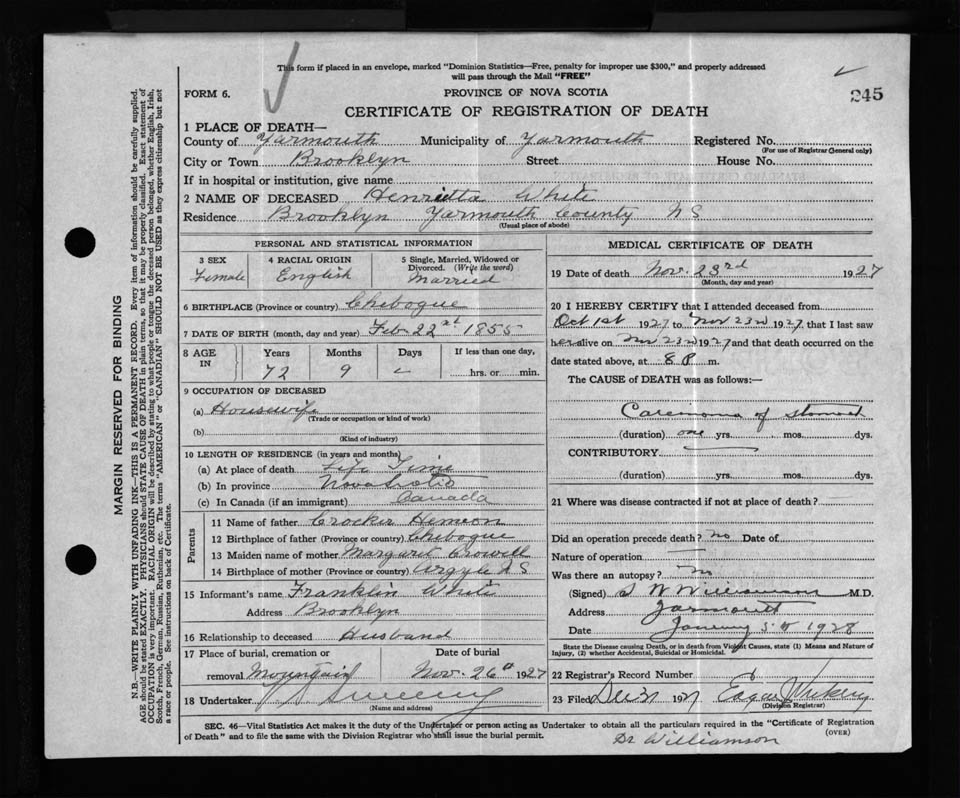 This form if placed in an envelope, marked "Dominion Statistics—Free, penalty for improper use $300," and properly addressed
will pass through the Mail "FREE"
FORM 6.
PROVINCE OF NOVA SCOTIA
245
CERTIFICATE OF REGISTRATION OF DEATH
1 PLACE OF DEATH—
County of Yarmouth Municipality of Yarmouth Registered No.
(For use of Registrar General only)
City or Town Brooklyn Street House No.
If in hospital or institution, give name
2 NAME OF DECEASED Henrietta White
Residence Brooklyn Yarmouth County N S
(Usual place of abode)
PERSONAL AND STATISTICAL INFORMATION
3 SEX 4 RACIAL ORIGIN 5 Single, Married, Widowed or
Divorced. (Write the word)
Female English Married
6 BIRTHPLACE (Province or country) Chebogue
7 DATE OF BIRTH (month, day and year) Feb 22nd 1855
8 AGE IN Years Months Days If less than one day,
72 9 hrs. or min.
9 OCCUPATION OF DECEASED
(a) Housewife
(Trade or occupation or kind of work)
(b)
(Kind of industry)
10 LENGTH OF RESIDENCE (in years and months)
(a) At place of death Life Time
(b) In province Nova Scotia
(c) In Canada (if an immigrant) Canada
Parents
11 Name of father Crocker
12 Birthplace of father (Province or country) Chebogue
13 Maiden name of mother Margaret Crowell
14 Birthplace of mother (Province or country) Argyle N S
15 Informant's name Franklin White
Address Brooklyn
16 Relationship to deceased Husband
17 Place of burial, cremation or Date of burial
removal Mountain Nov. 26th 1927
18 Undertaker Sweeny
(Name and address)
MEDICAL CERTIFICATE OF DEATH
19 Date of death Nov. 23rd 1927
(Month, day and year)
20 I HEREBY CERTIFY that I attended deceased from
Oct 1st 1927 to Nov 23rd 1927, that I last saw
her alive on Nov 23rd 1927 and that death occurred on the
date stated above, at 8 P m.
The CAUSE of DEATH was as follows:—
Carcinoma of stomach
(duration) one yrs. mos. dys.
CONTRIBUTORY
(duration) yrs. mos. dys.
21 Where was disease contracted if not at place of death?
Did an operation precede death? no Date of
Nature of operation
Was there an autopsy? no
(Signed) S W Williamson M.D.
Address Yarmouth
Date January 5th 1928
State the Disease causing Death, or in death from Violent Causes, state (1) Means and Nature of
Injury, (2) whether Accidental, Suicidal or Homicidal.
22 Registrar's Record Number
23 Filed Dec 31 1927 Edgar
(Division Registrar)
SEC. 46—Vital Statistics Act makes it the duty of the Undertaker or person acting as Undertaker to obtain all the particulars required in the "Certificate of Registration
of Death" and to file the same with the Division Registrar who shall issue the burial permit.
(OVER)
Dr Williamson
MARGIN RESERVED FOR BINDING
N.B.—WRITE PLAINLY WITH UNFADING INK—THIS IS A PERMANENT RECORD. Every item of information should be carefully supplied.
AGE should be stated EXACTLY. PHYSICIANS should STATE CAUSE OF DEATH in plain terms, so that it may be properly classified. Exact statement of
OCCUPATION is very important. RACIAL ORIGIN will be described by stating to what people or tongue the deceased person belonged, whether English, Irish,
Scotch, French, German, Russian, Ruthenian, etc. The terms "AMERICAN" or "CANADIAN" SHOULD NOT BE USED as they express citizenship but not
a race or people. See instructions on back of Certificate.